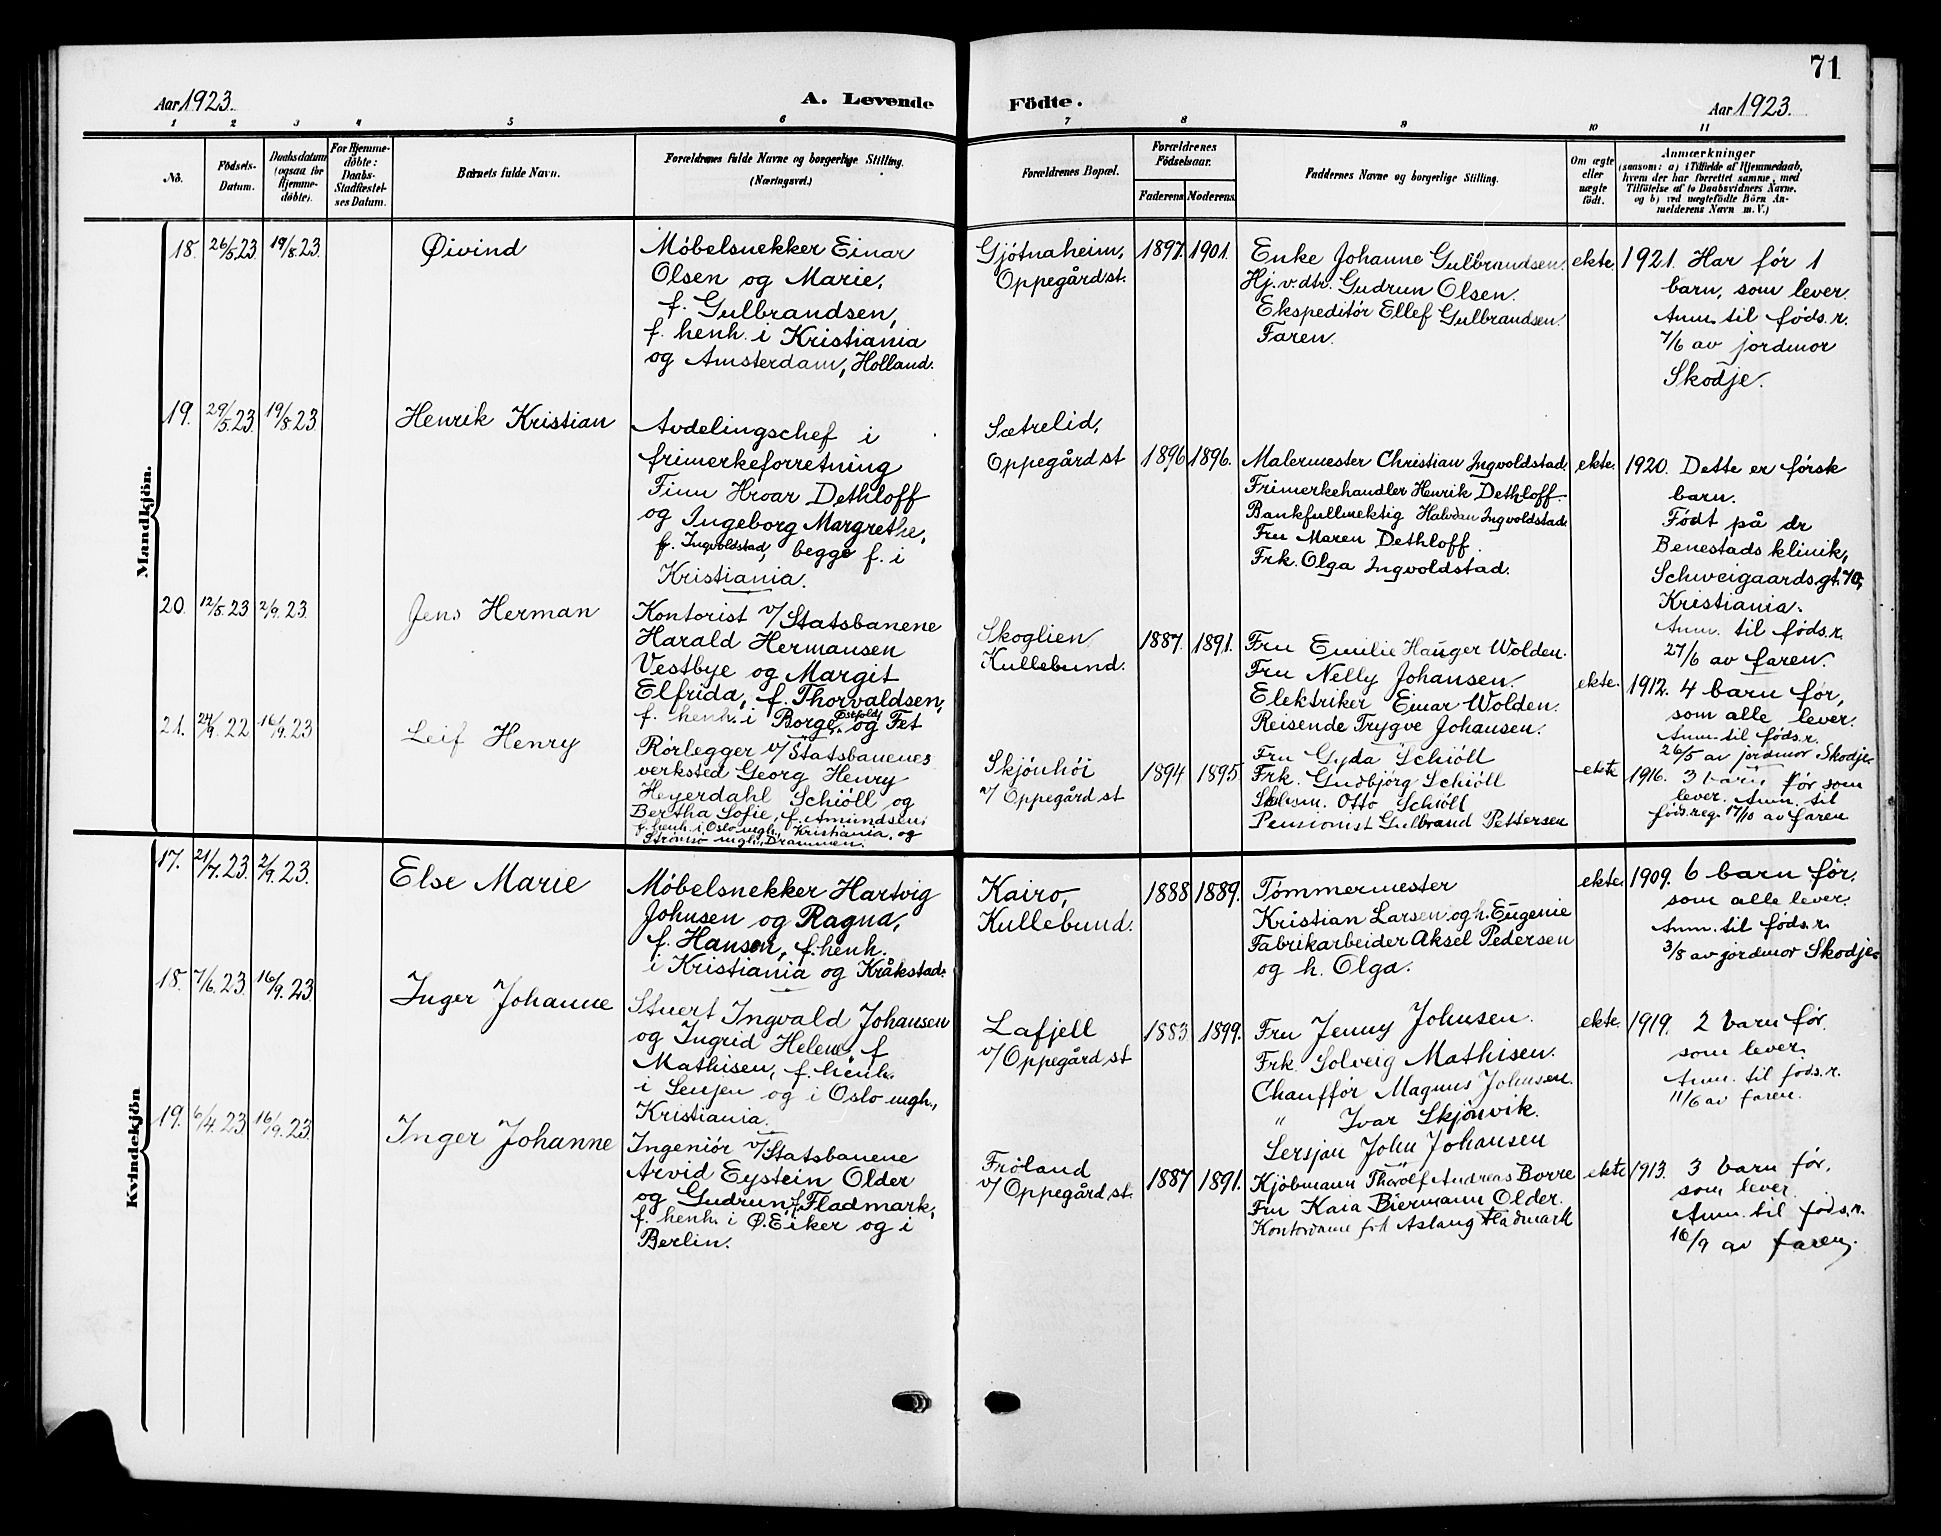 71
Aar 1923.
A. Levende
Födte.
Aar 1923.
1 2 3 4 5 6 7 8 9 10 11
No.
Födsels-
Datum.
Daabsdatum
(ogsaa for
Hjemme-
döbte).
For Hjemme-
döbte:
Daabs-
Stadfæstel-
ses Datum.
Barnets fulde Navn.
Forældrenes fulde Navne og borgerlige Stilling.
(Næringsvei.)
Forældrenes Bopæl.
Forældrenes
Födselsaar.
Faderens
Moderens
Faddernes Navne og borgerlige Stilling.
Om ægte
eller
uægte
födt.
Anmærkninger
(saasom: a) i Tilfælde af Hjemmedaab,
hvem der har forrettet samme, med
Tilföielse af to Daabsvidners Navne.
og b) ved uægtefödte Börn An-
melderens Navn m. V.)
Mandkjön.
18. 26/5 23 19/8 23
Øivind
Møbelsnekker Einar
Olsen og Marie,
f. Gulbrandsen,
f. henh. i Kristiania
og Amsterdam, Holland.
Gjøtnaheim,
Oppegård st.
1897. 1901.
Enke Johanne Gulbrandsen.
Hj.v. dtr. Gudrun Olsen.
Ekspeditør Ellef Gulbrandsen.
Faren.
ekte
1921. Har før 1
barn, som lever.
Anm. til føds.r.
7/6 av jordmor
Skodje.
19. 29/5 23 19/8 23
Henrik Kristian
Avdelingschef i
frimerkeforretning
Finn Hroar Dethloff
og Ingeborg Margrethe,
f. Ingvoldstad, begge f. i
Kristiania.
Sætrelid,
Oppegård st
1896 1896.
Malermester Christian Ingvoldstad.
Frimerkehandler Henrik Dethloff.
Bankfullmektig Halvdan Ingvoldstad.
Fru Maren Dethloff
Frk. Olga Ingvoldstad.
ekte.
1920. Dette er førsk
barn.
Født på dr
Benestads klinik,
Schweigaards.gt. 70,
Kristiania.
Anm. til føds.r.
27/6 av faren.
20. 12/5 23 2/9 23
Jens Herman
Kontorist v/ Statsbanene
Harald Hermansen
Vestbye og Margit
Elfrida, f. Thorvaldsen,
f. henh. i Borge, Østfold, og Fet
Skoglien
Kullebund.
1887. 1891.
Fru Emilie Hauger Wolden.
Fru Nelly Johansen.
Elektriker Einar Wolden.
Reisende Trygve Johansen.
ekte.
1912. 4 barn før,
som alle lever.
Anm. til føds.r.
26/5 av jordmor Skodje
21. 24/9 22 16/9 23
Leif Henry
Rørlegger v/ Statsbanenes
verksted Georg Henry
Heyerdahl Schiøll og
Bertha Sofie, f. Amundsen,
f. henh. i Oslo mgh., Kristiania, og
Strømsø mgh., Drammen.
Skjønhøi
v/ Oppegård st
1894 1895
Fru Gyda Schiøll
Frk. Gudbjørg Schiøll
Otto Schiøll
Pensionist Gulbrand Pettersen
ekte
1916. 3 barn før som
lever. Anm. til
føds.reg. 17/10 av faren
Kvindekjön
17. 21/7 23. 2/9 23.
Else Marie
Møbelsnekker Hartvig
Johnsen og Ragna,
f. Hansen, f. henh.
i Kristiania og Kråkstad.
Kairo,
Kullebund.
1888 1889.
Tømmermester
Kristian Larsen og h. Eugenie
Fabrikarbeider Aksel Pedersen
og h. Olga.
ekte.
1909. 6 barn før.
som alle lever.
Anm. til føds.r.
3/8 av jordmor Skodje
18. 7/6 23. 16/9 23.
Inger Johanne
Stuert Ingvald Johansen
og Ingrid Helene, f
Mathisen, f. henh.
i Senjen og i Oslo mgh.,
Kristiania.
Lafjell
v/ Oppegård st
1883. 1899.
Fru Jenny Johnsen.
Frk. Solveig Mathisen.
Chauffør Magnus Johnsen.
" Ivar Skjønvik.
Sersjan John Johansen
ekte.
1919. 2 barn før.
som lever.
Anm. til føds.r.
11/6 av faren.
19. 6/4 23 16/9 23.
Inger Johanne
Ingeniør v/ Statsbanene
Arvid Eystein Older
og Gudrun, f. Fladmark,
f. henh. i Ø. Eiker og i
Berlin.
Frøland
v/ Oppegård st.
1887 1891.
Kjøbmann Thorolf Andreas Borre
Fru Kaia Biermann Older.
Kontordame frk Aslaug Fladmark
ekte
1913. 3 barn før,
som lever.
Anm. til føds.r.
16/9 av faren.